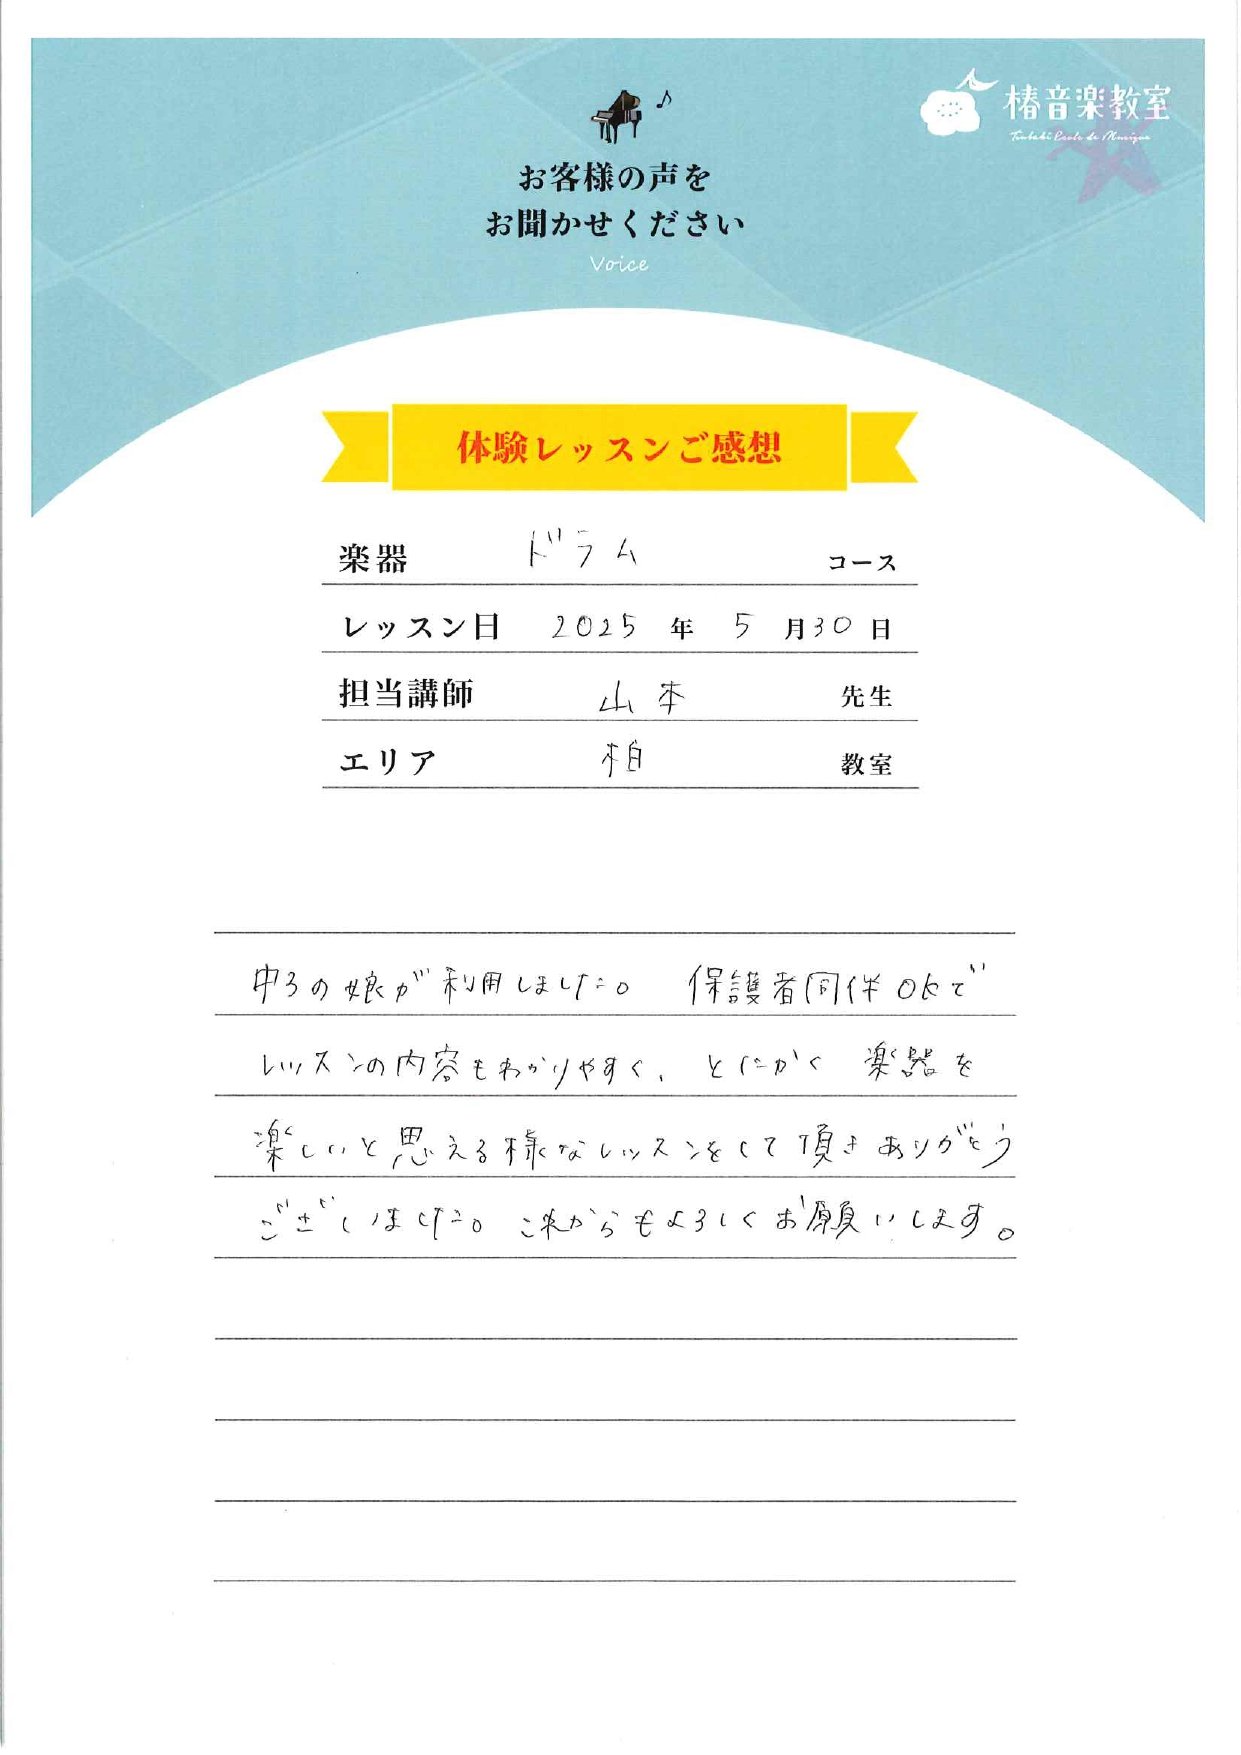 椿音楽教室
Tsubaki Ecole de Musique
お客様の声を
お聞かせください
Voice
体験レッスンご感想
楽器 ドラム コース
レッスン日 2025 年 5 月 30 日
担当講師 山本 先生
エリア 柏 教室
中3の娘が利用しました。 保護者同伴OKで
レッスンの内容もわかりやすく、とにかく 楽器を
楽しいと思える様なレッスンをして頂きありがとう
ございました。これからもよろしくお願いします。